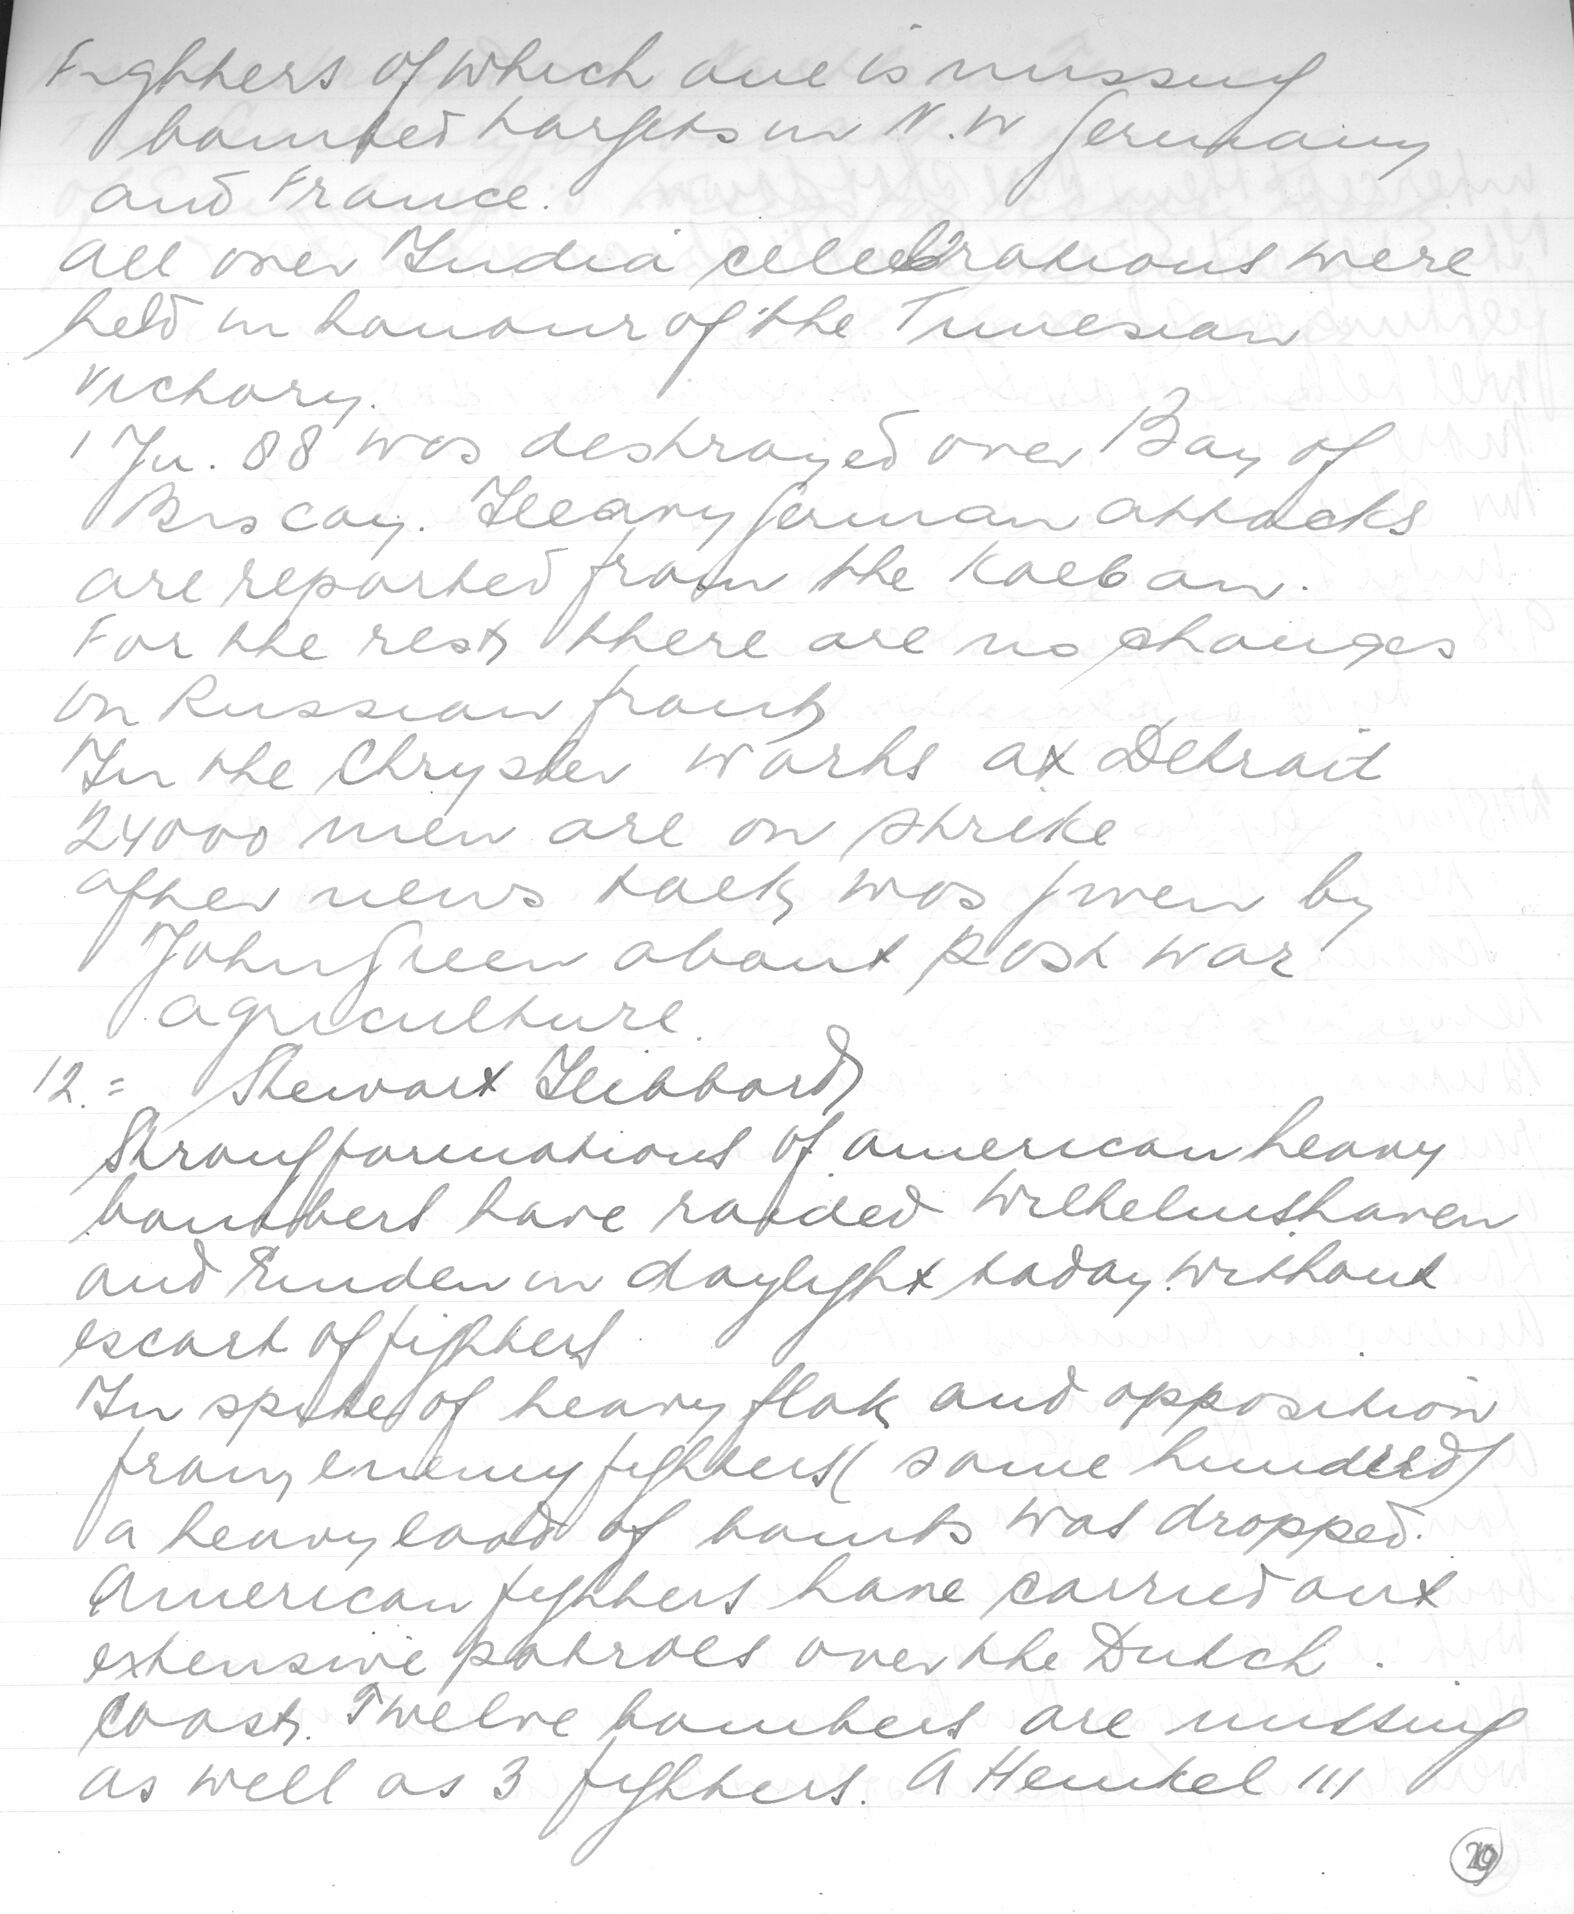 Fighters of which one is missing
bombed targets in N.W Germany
and France.
All over India celebrations were
held in honour of the Tunesian
victory.
1 Ju. 88 was destroyed over Bay of
Biscay. Heavy German attacks
are reported from the Koeban.
For the rest there are no changes
on Russian front
In the Chrysler works at Detroit
24000 men are on strike
after news talk was given by
John Green about post war
agriculture.
12. = Stewart Hibbard
Strong formations of american heavy
bombers have raided Wilhelmshaven
and Emden in daylight today. without
escort of fighters
In spite of heavy flak and opposition
from enemy fighters (some hundred)
a heavy load of bombs was dropped.
American fighters have carried out
extensive patrols over the Dutch
coast. Twelve bombers are missing
as well as 3 fighters. A Heinkel 111
29